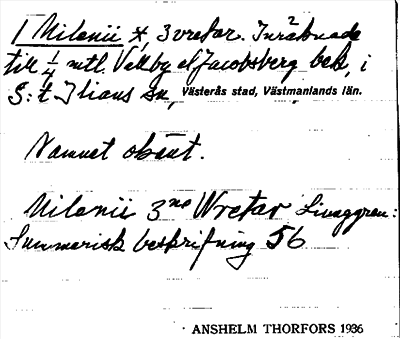 [ Milenii *, 3 vretar. Inräknade
till 1/4 mtl. Vallby el. Jacobsberg bek, i
S:t Ilians sn, Västerås stad, Västmanlands län.
Namnet okänt.
Milenii 3ne Wretar Livaggren:
Summarisk beskrifning 56
ANSHELM THORFORS 1936